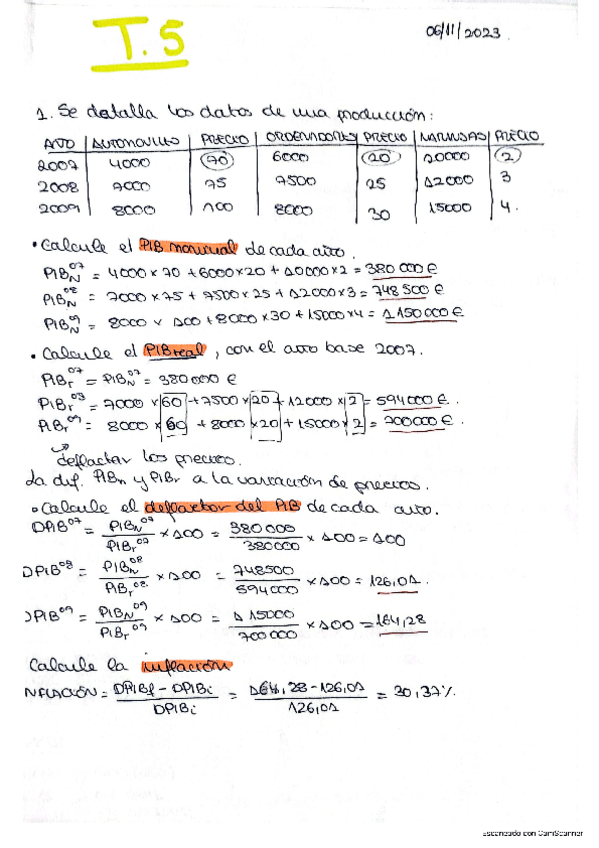 T.5
06/11/2023.
1. Se detalla los datos de una producción:
AÑO | AUTOMOVILES | PRECIO | ORDENADORES | PRECIO | NARANJAS | PRECIO
2007 4000 70 6000 20 10000 2
2008 7000 75 7500 25 12000 3
2009 8000 100 8000 30 15000 4.
• Calcule el PIB nominal de cada año.
PIB_N^07 = 4000 x 70 + 6000 x 20 + 10000 x 2 = 380 000 €
PIB_N^08 = 7000 x 75 + 7500 x 25 + 12000 x 3 = 748 500 €
PIB_N^09 = 8000 x 100 + 8000 x 30 + 15000 x 4 = 1 150 000 €
• Calcule el PIB real, con el año base 2007.
PIB_r^07 = PIB_N^07 = 380 000 €
PIB_r^08 = 7000 x 60 + 7500 x 20 + 12000 x 2 = 594 000 €.
PIB_r^09 = 8000 x 60 + 8000 x 20 + 15000 x 2 = 700000 €.
deflactar los precios.
La dif. PIB_n y PIB_r a la variación de precios.
• Calcule el deflactor del PIB de cada año.
DPIB^07 = PIB_N^07 / PIB_r^07 x 100 = 380 000 / 380 000 x 100 = 100
DPIB^08 = PIB_N^08 / PIB_r^08 x 100 = 748500 / 594000 x 100 = 126,01.
DPIB^09 = PIB_N^09 / PIB_r^09 x 100 = 1 15000 / 700 000 x 100 = 164,28
Calcule la inflación
INFLACIÓN = DPIBf - DPIBi / DPIBi = 164,28 - 126,01 / 126,01 = 30,37%.
Escaneado con CamScanner